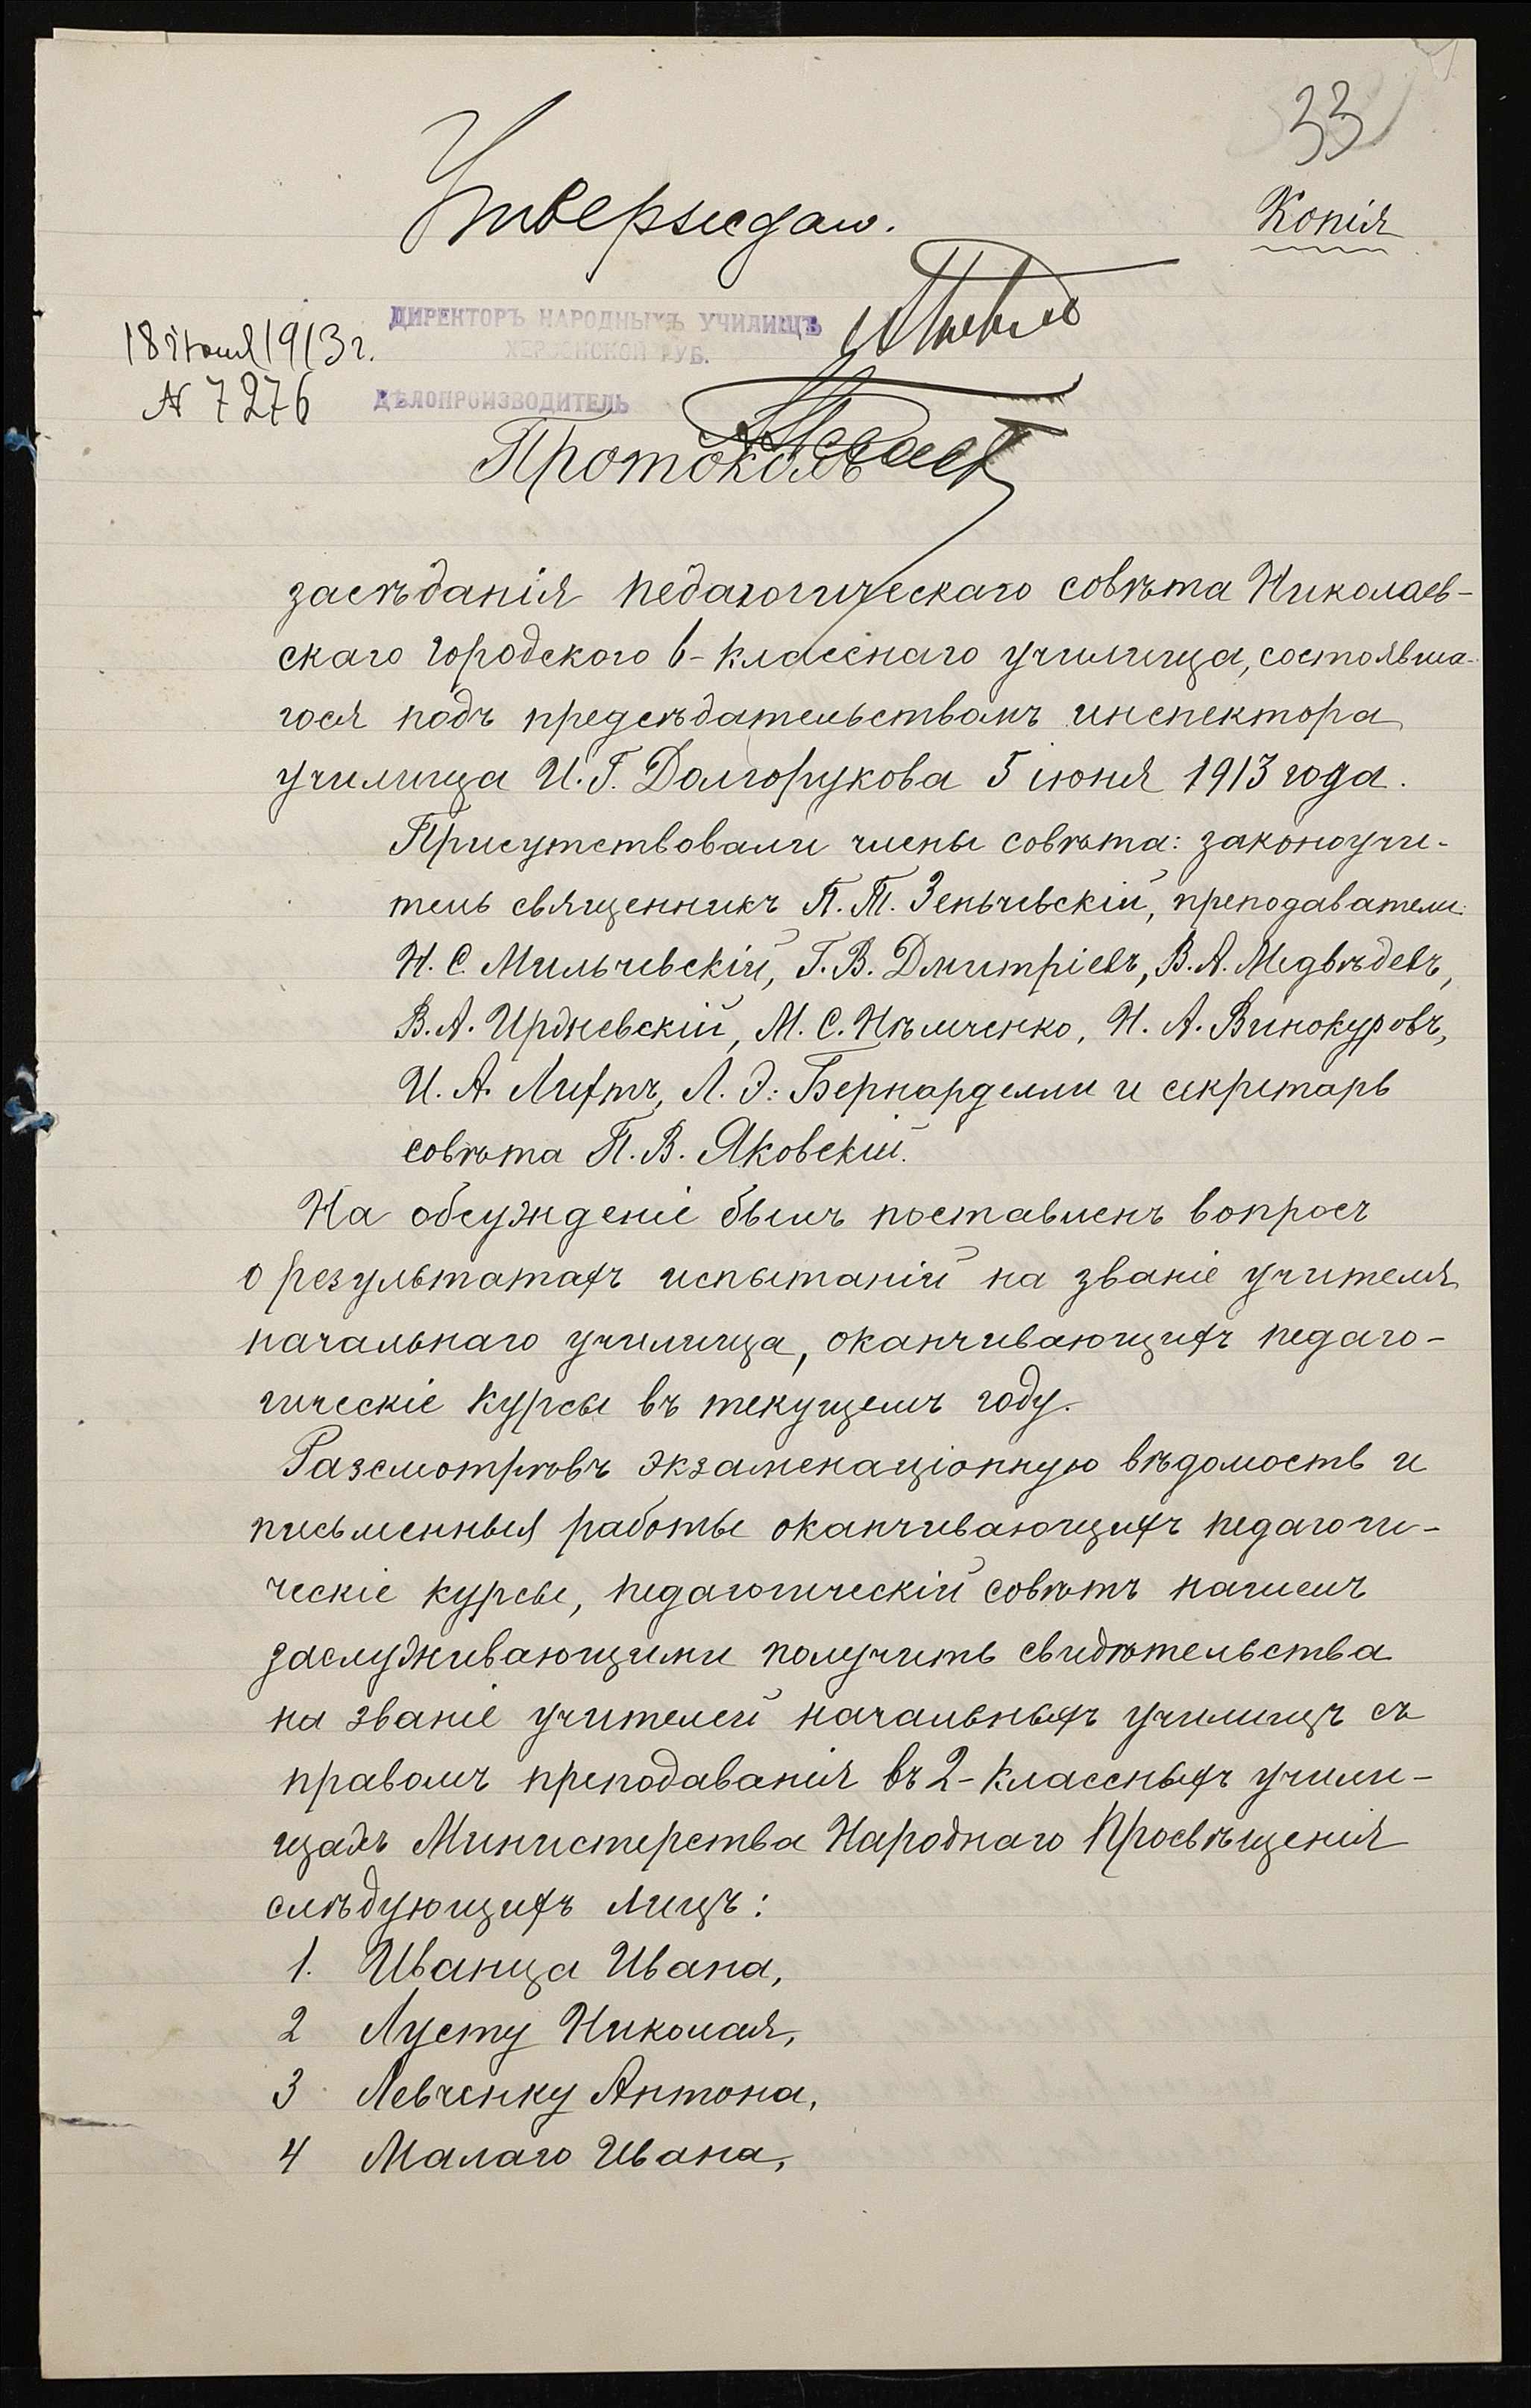 33
Утверждаю.
Копія
ДИРЕКТОРЪ НАРОДНЫХЪ УЧИЛИЩЪ
ХЕРСОНСКОЙ ГУБ.
18 іюня 1913 г.
№ 7276
ДѢЛОПРОИЗВОДИТЕЛЬ
Протоколъ
засѣданія педагогическаго совѣта Николаев-
скаго городского 6-класснаго училища, состоявша-
гося подъ предсѣдательствомъ инспектора
училища И. Г. Долгорукова 5 іюня 1913 года.
Присутствовали члены совѣта: законоучи-
тель священникъ П. Т. Зеньчевскій, преподаватели:
Н. С. Мильчевскій, Г. В. Дмитріевъ, В. А. Медвѣдевъ,
В. А. Ирдневскій, М. С. Нѣмченко, Н. А. Винокуровъ,
И. А. Лифтъ, Л. Э. Бернарделли и секретарь
совѣта П. В. Яковскій.
На обсужденіе былъ поставленъ вопросъ
о результатахъ испытаній на званіе учителя
начальнаго училища, оканчивающихъ педаго-
гическіе курсы въ текущемъ году.
Разсмотрѣвъ экзаменаціонную вѣдомость и
письменныя работы оканчивающихъ педагоги-
ческіе курсы, педагогическій совѣтъ нашелъ
заслуживающими получить свидѣтельства
на званіе учителей начальныхъ училищъ съ
правомъ преподаванія въ 2-классныхъ учили-
щахъ Министерства Народнаго Просвѣщенія
слѣдующихъ лицъ:
1. Иванца Ивана,
2 Лусту Николая,
3 Левченку Антона,
4 Малаго Ивана,